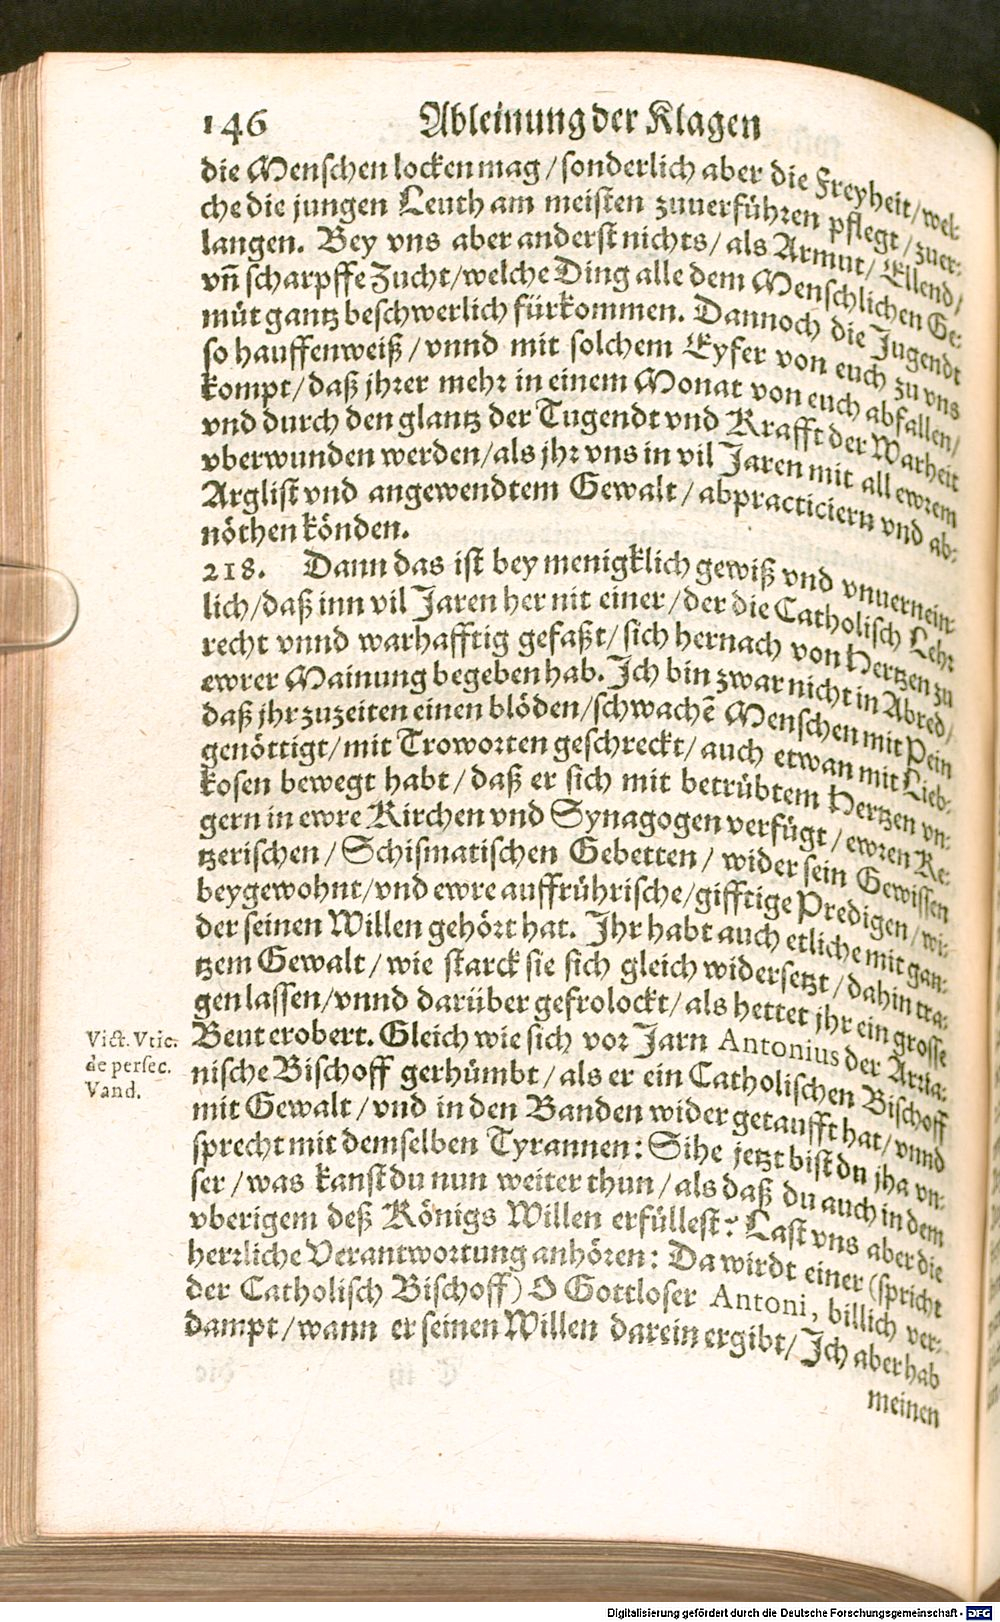 146 Ableinung der Klagen
die Menschen locken mag / sonderlich aber die Freyheit / wel-
che die jungen Leuth am meisten zuuerführen pflegt / zuer-
langen. Bey vns aber anderst nichts / als Armut / Ellend /
vñ scharpffe Zucht / welche Ding alle dem Menschlichen Ge-
müt gantz beschwerlich fürkommen. Dannoch die Jugendt
so hauffenweiß / vnnd mit solchem Eyfer von euch zu vns
kompt / daß jhrer mehr in einem Monat von euch abfallen /
vnd durch den glantz der Tugendt vnd Krafft der Warheit
vberwunden werden / als jhr vns in vil Jaren mit all ewrem
Arglist vnd angewendtem Gewalt / abpracticiern vnd ab-
nöthen könden.
218. Dann das ist bey menigklich gewiß vnd vnuernein-
lich / daß inn vil Jaren her nit einer / der die Catholisch Lehr
recht vnnd warhafftig gefaßt / sich hernach von Hertzen zu
ewrer Mainung begeben hab. Ich bin zwar nicht in Abred /
daß jhr zuzeiten einen blöden / schwachē Menschen mit Pein
genöttigt / mit Troworten geschreckt / auch etwan mit Lieb-
kosen bewegt habt / daß er sich mit betrübtem Hertzen vn-
gern in ewre Kirchen vnd Synagogen verfügt / ewren Ke-
tzerischen / Schismatischen Gebetten / wider sein Gewissen
beygewohnt / vnd ewre auffrührische / gifftige Predigen / wi-
der seinen Willen gehört hat. Ihr habt auch etliche mit gan-
tzem Gewalt / wie starck sie sich gleich widersetzt / dahin tra-
gen lassen / vnnd darüber gefrolockt / als hettet jhr ein grosse
Beut erobert. Gleich wie sich vor Jarn Antonius der Arria-
nische Bischoff gerhümbt / als er ein Catholischen Bischoff
mit Gewalt / vnd in den Banden wider getaufft hat / vnnd
sprecht mit demselben Tyrannen: Sihe jetzt bist du jha vn-
ser / was kanst du nun weiter thun / als daß du auch in dem
vberigem deß Königs Willen erfüllest? Last vns aber die
herrliche Verantwortung anhören: Da wirdt einer (spricht
der Catholisch Bischoff) O Gottloser Antoni, billich ver-
dampt / wann er seinen Willen darein ergibt / Ich aber hab
meinen
Vict. Vtic.
de persec.
Vand.
Digitalisierung gefördert durch die Deutsche Forschungsgemeinschaft - DFG